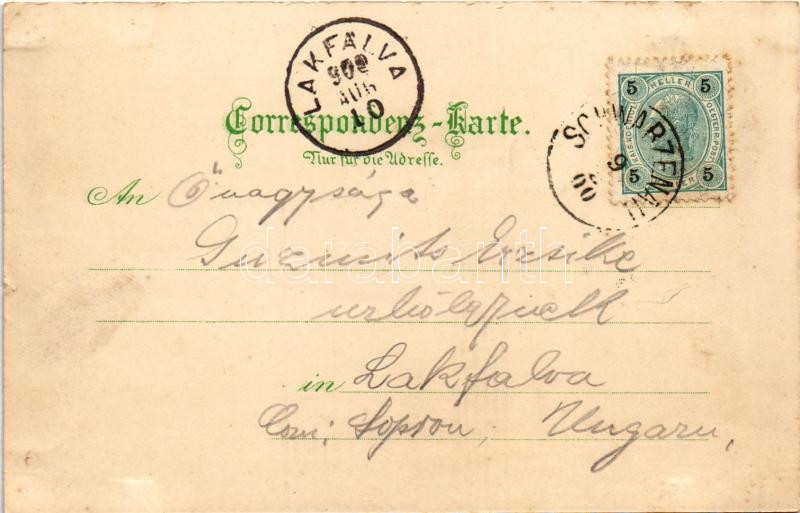 LAKFALVA
900
AUG
10
5 HELLER 5
5 5
SCHWARZENAU
9
00
Correspondenz-Karte.
Nur für die Adresse.
An Őnagysága
Guzmits Erzsike
urhölgynek
in Lakfalva
Com: Sopron, Ungarn,
darabanth